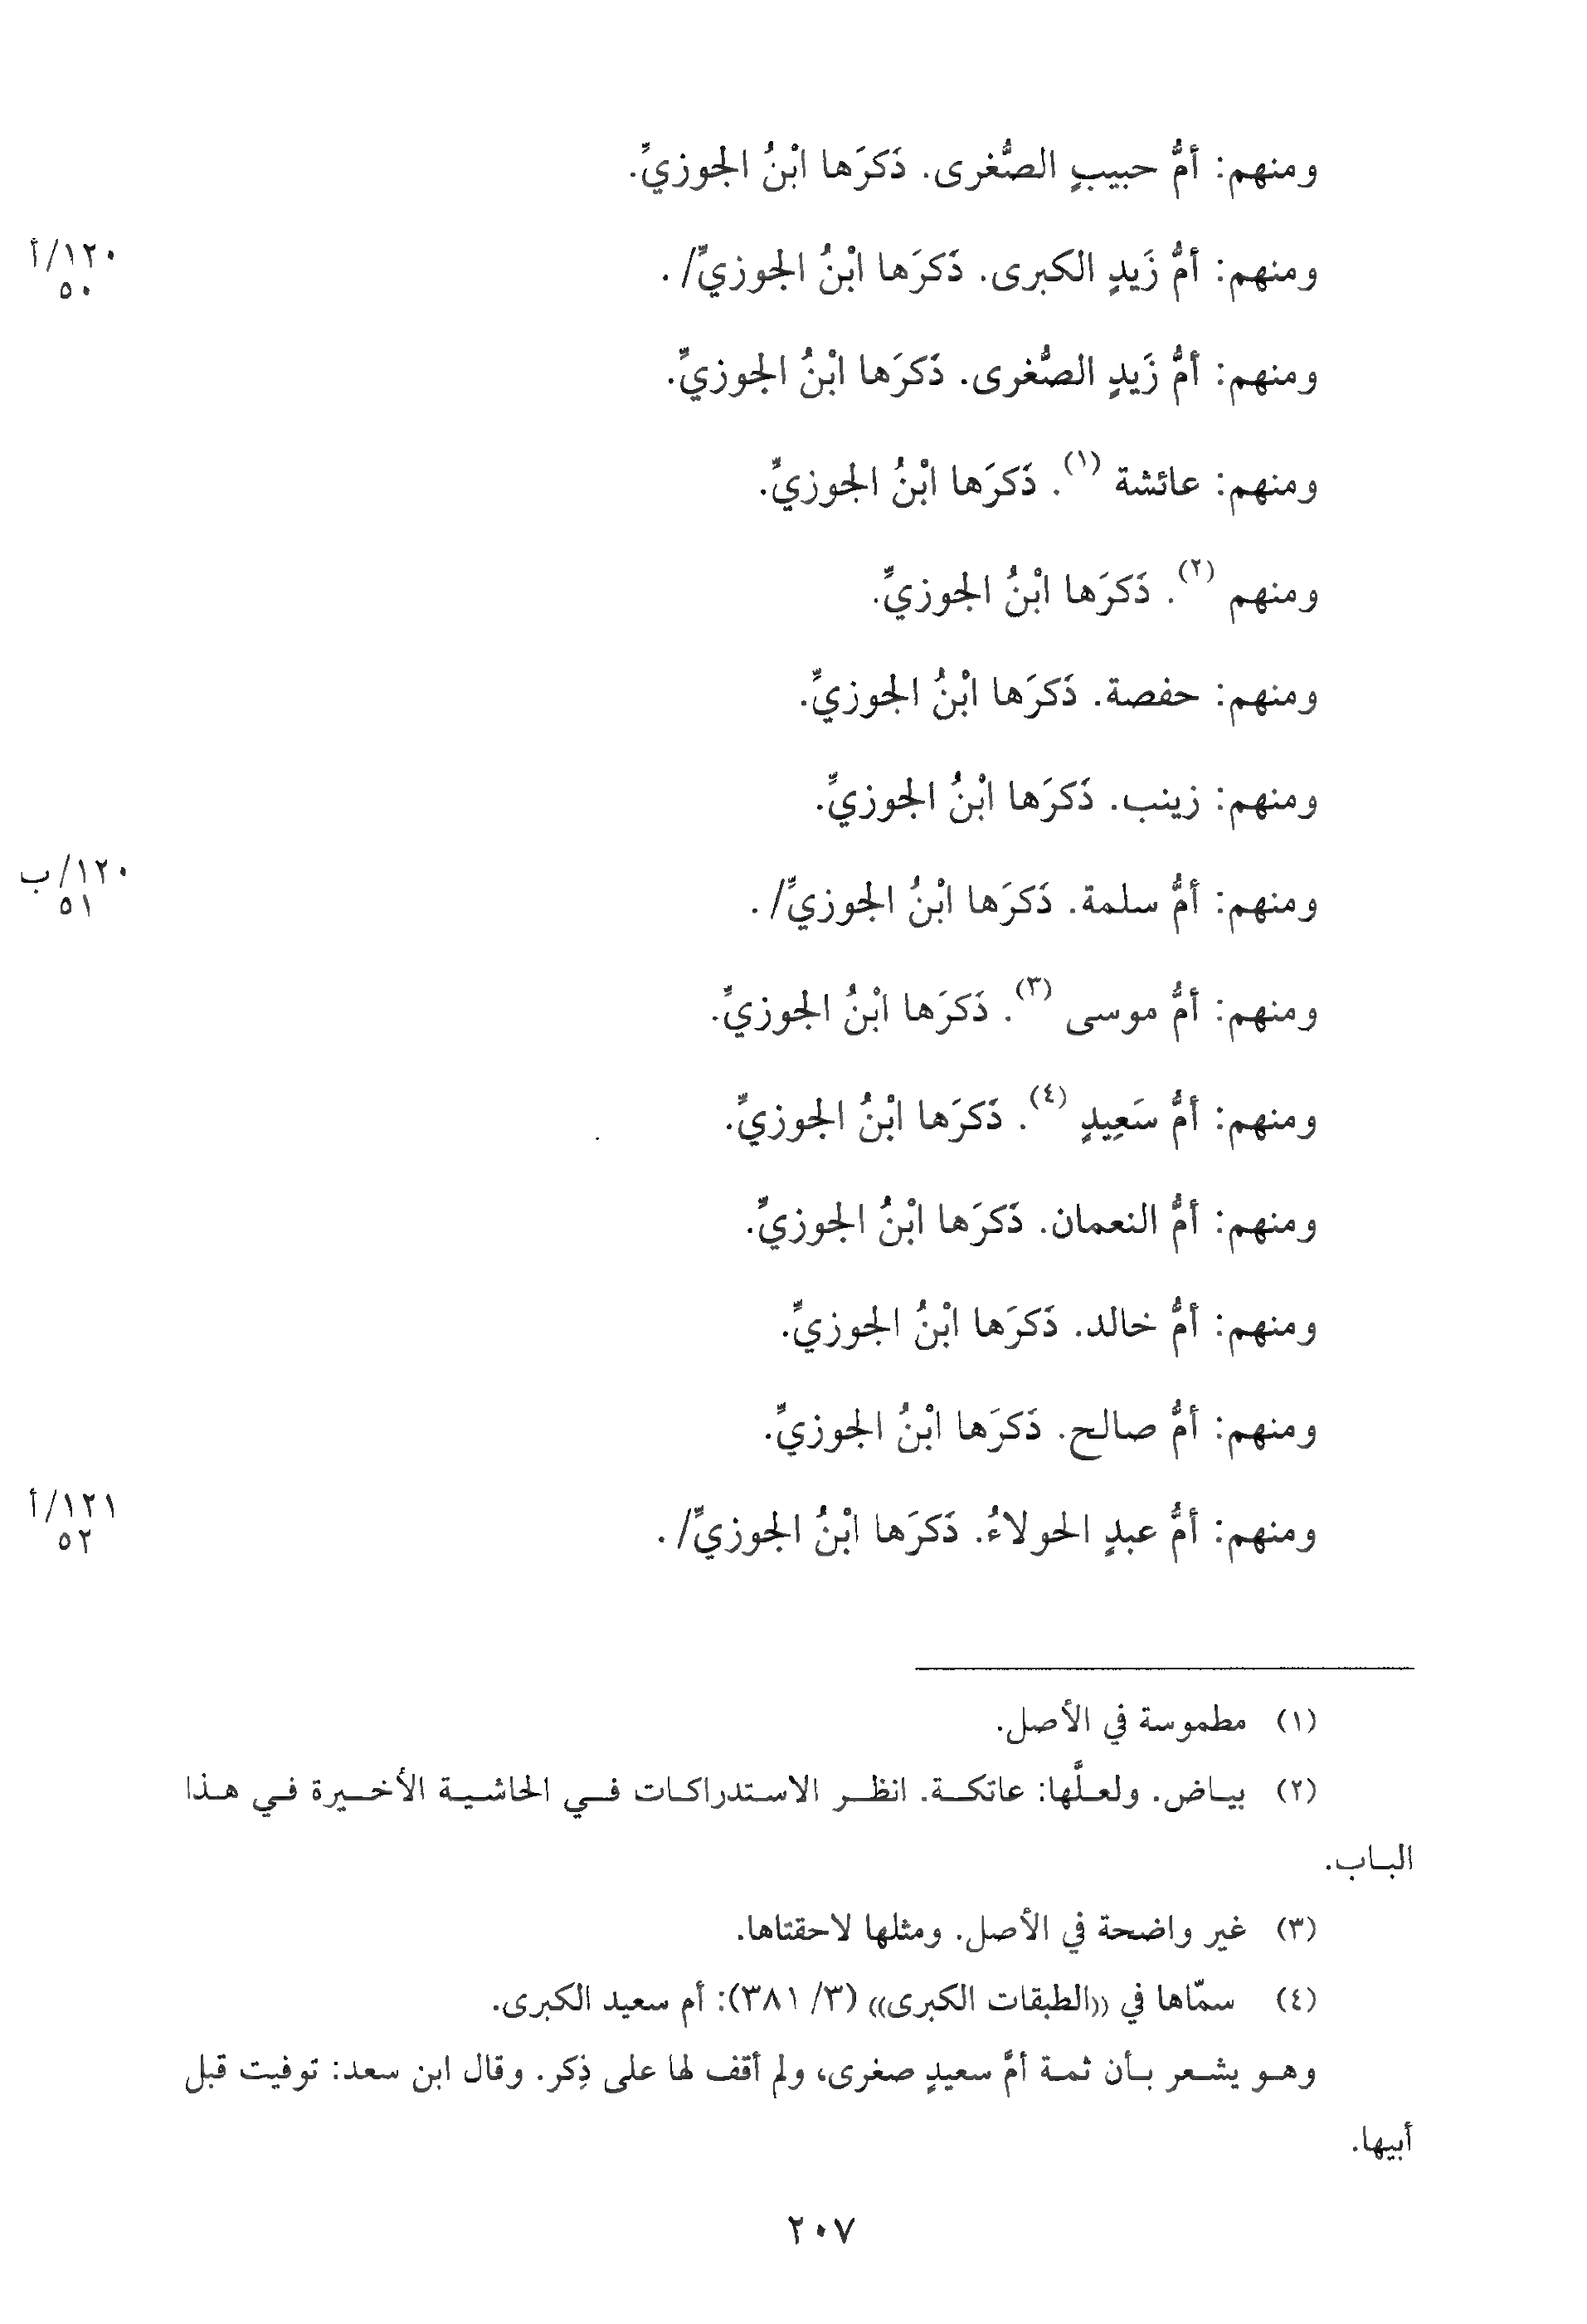 ومنهم: أمُّ حبيبٍ الصُّغرى. ذَكرَها ابْنُ الجوزيِّ.
ومنهم: أمُّ زَيدٍ الكبرى. ذَكرَها ابْنُ الجوزيِّ/ .
١٢٠/أ
٥٠
ومنهم: أمُّ زَيدٍ الصُّغرى. ذَكرَها ابْنُ الجوزيِّ.
ومنهم: عائشة (١). ذَكرَها ابْنُ الجوزيِّ.
ومنهم (٢). ذَكرَها ابْنُ الجوزيِّ.
ومنهم: حفصة. ذَكرَها ابْنُ الجوزيِّ.
ومنهم: زينب. ذَكرَها ابْنُ الجوزيِّ.
ومنهم: أمُّ سلمة. ذَكرَها ابْنُ الجوزيِّ/ .
١٢٠/ب
٥١
ومنهم: أمُّ موسى (٣). ذَكرَها ابْنُ الجوزيِّ.
ومنهم: أمُّ سَعِيدٍ (٤). ذَكرَها ابْنُ الجوزيِّ.
ومنهم: أمُّ النعمان. ذَكرَها ابْنُ الجوزيِّ.
ومنهم: أمُّ خالد. ذَكرَها ابْنُ الجوزيِّ.
ومنهم: أمُّ صالح. ذَكرَها ابْنُ الجوزيِّ.
ومنهم: أمُّ عبدٍ الحولاءُ. ذَكرَها ابْنُ الجوزيِّ/ .
١٢١/أ
٥٢
(١) مطموسة في الأصل.
(٢) بياض. ولعلَّها: عاتكة. انظر الاستدراكات في الحاشية الأخيرة في هذا
الباب.
(٣) غير واضحة في الأصل. ومثلها لاحقتاها.
(٤) سمّاها في ((الطبقات الكبرى)) (٣/ ٣٨١): أم سعيد الكبرى.
وهو يشعر بأن ثمة أمَّ سعيدٍ صغرى، ولم أقف لها على ذِكر. وقال ابن سعد: توفيت قبل
أبيها.
٢٠٧